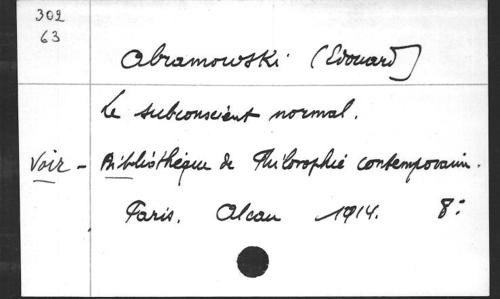 302
63
Abramowski (Edouard)
Le subconscient normal.
Voir - Bibliothèque de Philosophie contemporain.
Paris. Alcan 1914. 8: